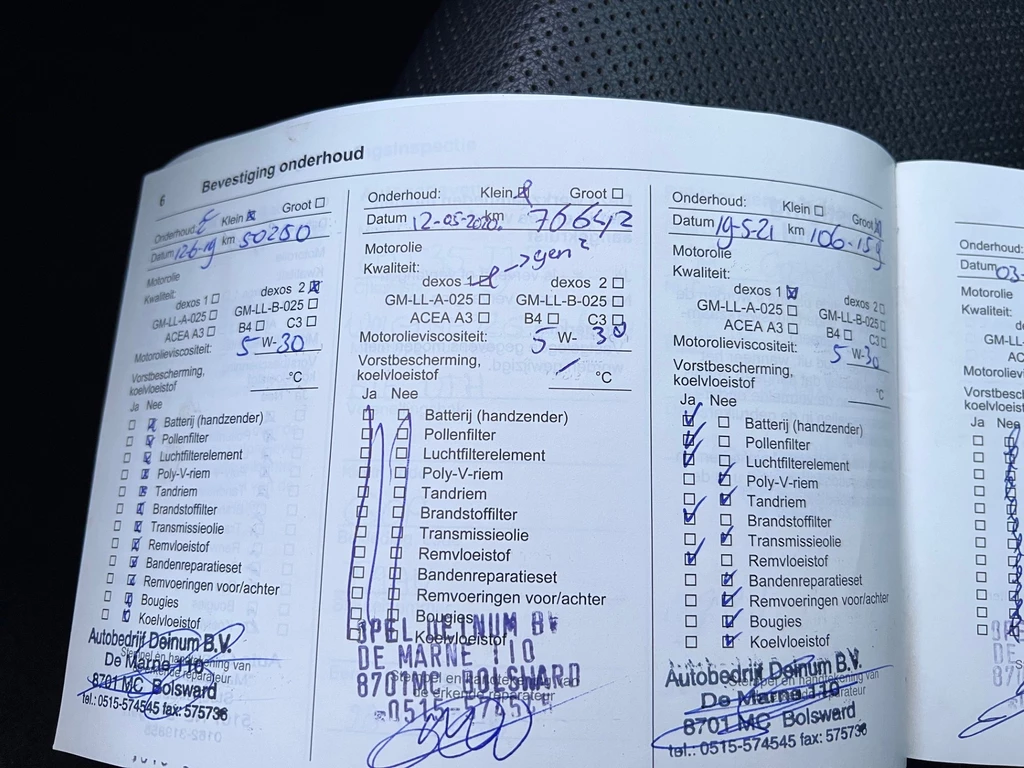 6 Bevestiging onderhoud
Onderhoud: Klein Groot
Datum 12-6-19 km 50250
Motorolie
Kwaliteit:
dexos 1 dexos 2
GM-LL-A-025 GM-LL-B-025
ACEA A3 B4 C3
Motorolieviscositeit: 5 W-30
Vorstbescherming,
koelvloeistof °C
Ja Nee
Batterij (handzender)
Pollenfilter
Luchtfilterelement
Poly-V-riem
Tandriem
Brandstoffilter
Transmissieolie
Remvloeistof
Bandenreparatieset
Remvoeringen voor/achter
Bougies
Koelvloeistof
Autobedrijf Deinum B.V.
De Marne 110
8701 MC Bolsward
tel.: 0515-574545 fax: 575736
Stempel en handtekening van
reparateur
Onderhoud: Klein Groot
Datum 12-05-2020 km 70642
Motorolie
Kwaliteit:
dexos 1 → gen 2 dexos 2
GM-LL-A-025 GM-LL-B-025
ACEA A3 B4 C3
Motorolieviscositeit: 5 W- 30
Vorstbescherming,
koelvloeistof °C
Ja Nee
Batterij (handzender)
Pollenfilter
Luchtfilterelement
Poly-V-riem
Tandriem
Brandstoffilter
Transmissieolie
Remvloeistof
Bandenreparatieset
Remvoeringen voor/achter
Bougies
Koelvloeistof
OPEL DEINUM BV
DE MARNE 110
8701MC BOLSWARD
Stempel en handtekening van
de erkende reparateur
Onderhoud: Klein Groot
Datum 19-5-21 km 106.159
Motorolie
Kwaliteit:
dexos 1 dexos 2
GM-LL-A-025 GM-LL-B-025
ACEA A3 B4 C3
Motorolieviscositeit: 5 W-30
Vorstbescherming,
koelvloeistof °C
Ja Nee
Batterij (handzender)
Pollenfilter
Luchtfilterelement
Poly-V-riem
Tandriem
Brandstoffilter
Transmissieolie
Remvloeistof
Bandenreparatieset
Remvoeringen voor/achter
Bougies
Koelvloeistof
Autobedrijf Deinum B.V.
De Marne 110
8701 MC Bolsward
tel.: 0515-574545 fax: 575736
Stempel en handtekening van
reparateur
Onderhoud:
Datum 03-
Motorolie
Kwaliteit:
GM-L
AC
Motorolievis
Vorstbesc
koelvloeis
Ja Nee